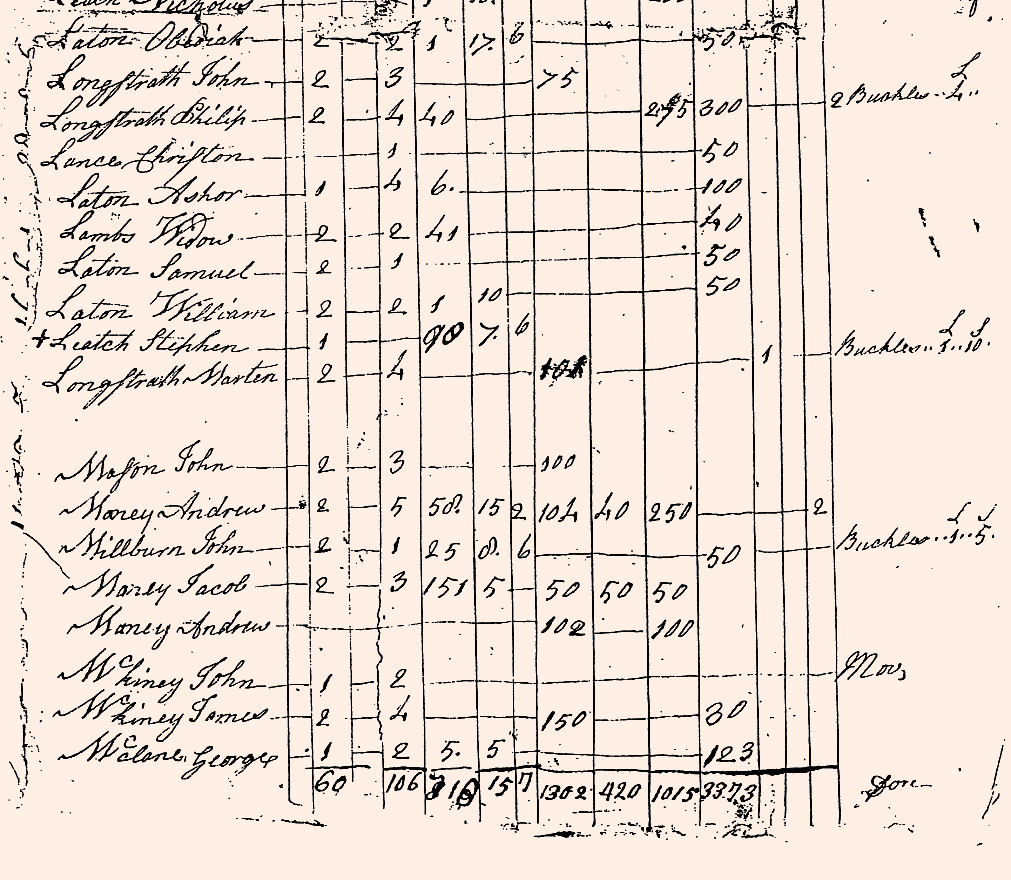 Leach Nicholus
Laton Obediah 2 2 1 17. 6 50
Longstrath John 2 3 75
Longstrath Philip 2 4 40 295 300 2 Buckles
Lance Christon 1 50
Laton Ashor 1 4 6. 100
Lambs Widow 2 2 41 40
Laton Samuel 2 1 50
Laton William 2 2 1 10 50
+ Leatch Stephen 1 90 7. 6
Longstrath Marten 2 4 101 1 Buckles.. £1..S10.
Mason John 2 3 100
Maney Andrew 2 5 50. 15 2 104 40 250 2
Millburn John 2 1 25 8. 6 50 Buckles..£1..S5.
Marey Jacob 2 3 151 5 50 50 50
Maney Andrew 102 100
McKiney John 1 2 Mov,
McKiney James 2 4 150 30
McClane, George 1 2 5. 5 123
60 106 316 15 7 1302 420 1015 3373